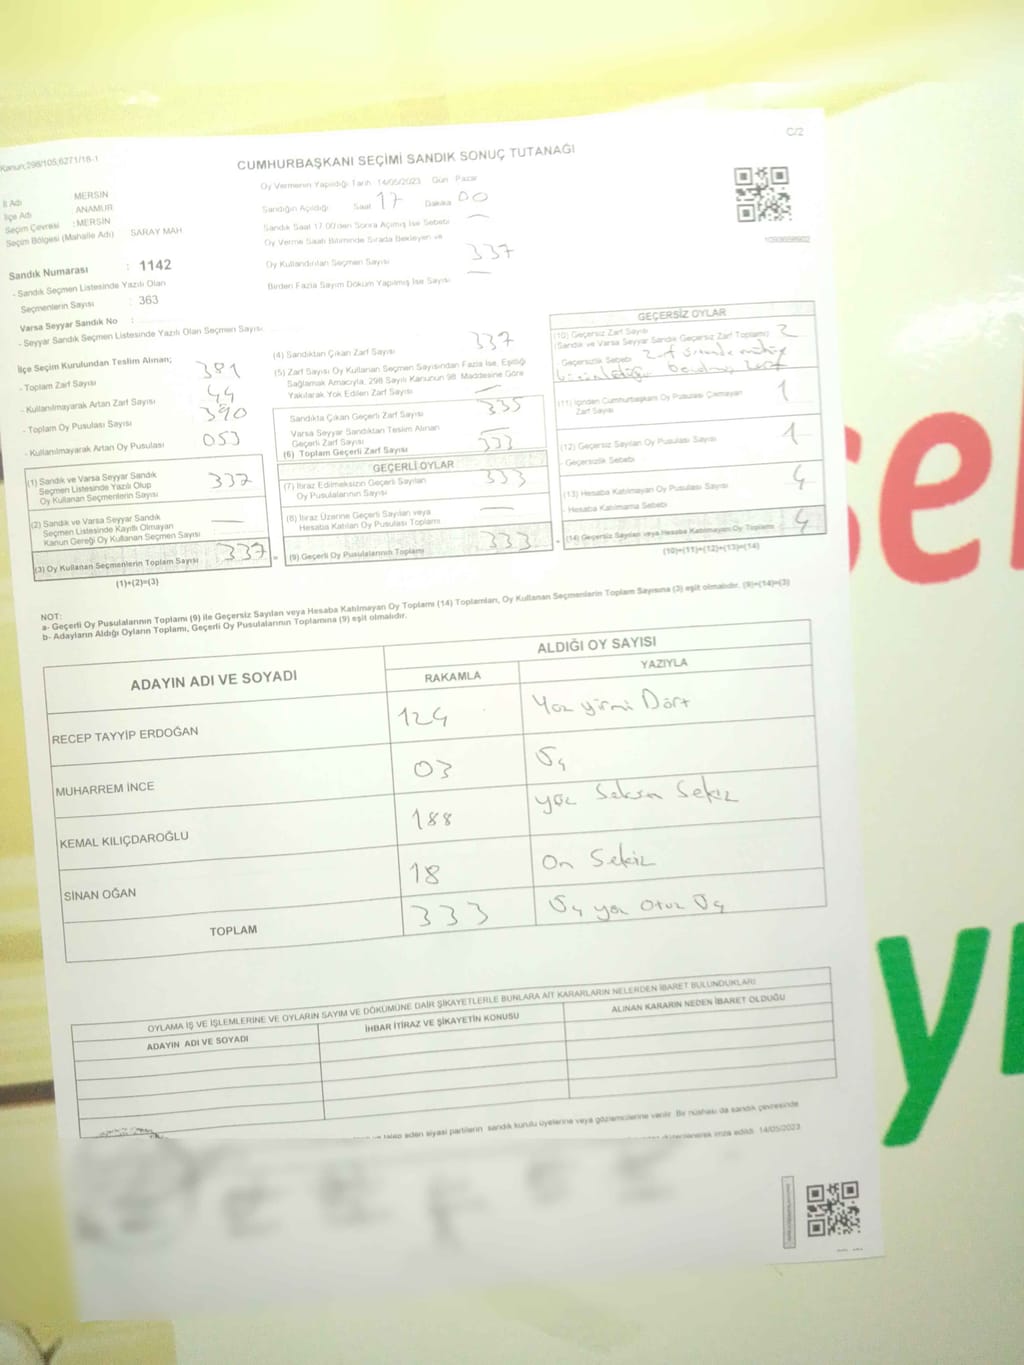 Kanun;298/105;6271/18-1
C/2
CUMHURBAŞKANI SEÇİMİ SANDIK SONUÇ TUTANAĞI
İl Adı MERSİN
İlçe Adı ANAMUR
Seçim Çevresi : MERSİN
Seçim Bölgesi (Mahalle Adı) SARAY MAH
Oy Vermenin Yapıldığı Tarih 14/05/2023 Gün Pazar
Sandığın Açıldığı Saat 17 Dakika 00
Sandık Saat 17.00'den Sonra Açılmış İse Sebebi —
Oy Verme Saati Bitiminde Sırada Bekleyen ve
Oy Kullandırılan Seçmen Sayısı 337
Birden Fazla Sayım Döküm Yapılmış İse Sayısı —
Sandık Numarası : 1142
- Sandık Seçmen Listesinde Yazılı Olan
Seçmenlerin Sayısı : 363
Varsa Seyyar Sandık No :
- Seyyar Sandık Seçmen Listesinde Yazılı Olan Seçmen Sayısı:
İlçe Seçim Kurulundan Teslim Alınan;
- Toplam Zarf Sayısı 381
- Kullanılmayarak Artan Zarf Sayısı 44
- Toplam Oy Pusulası Sayısı 390
- Kullanılmayarak Artan Oy Pusulası 053
(1) Sandık ve Varsa Seyyar Sandık
Seçmen Listesinde Yazılı Olup
Oy Kullanan Seçmenlerin Sayısı 337
(2) Sandık ve Varsa Seyyar Sandık
Seçmen Listesinde Kayıtlı Olmayan
Kanun Gereği Oy Kullanan Seçmen Sayısı —
(3) Oy Kullanan Seçmenlerin Toplam Sayısı 337
(1)+(2)=(3)
(4) Sandıktan Çıkan Zarf Sayısı 337
(5) Zarf Sayısı Oy Kullanan Seçmen Sayısından Fazla İse, Eşitliği
Sağlamak Amacıyla, 298 Sayılı Kanunun 98. Maddesine Göre
Yakılarak Yok Edilen Zarf Sayısı —
Sandıkta Çıkan Geçerli Zarf Sayısı 335
Varsa Seyyar Sandıktan Teslim Alınan
Geçerli Zarf Sayısı —
(6) Toplam Geçerli Zarf Sayısı 333
GEÇERLİ OYLAR
(7) İtiraz Edilmeksizin Geçerli Sayılan
Oy Pusulalarının Sayısı 333
(8) İtiraz Üzerine Geçerli Sayılan veya
Hesaba Katılan Oy Pusulası Toplamı —
(9) Geçerli Oy Pusulalarının Toplamı 333
GEÇERSİZ OYLAR
(10) Geçersiz Zarf Sayısı
(Sandık ve Varsa Seyyar Sandık Geçersiz Zarf Toplamı) 2
Geçersizlik Sebebi
(11) İçinden Cumhurbaşkanı Oy Pusulası Çıkmayan
Zarf Sayısı 1
(12) Geçersiz Sayılan Oy Pusulası Sayısı 1
- Geçersizlik Sebebi
(13) Hesaba Katılmayan Oy Pusulası Sayısı 4
- Hesaba Katılmama Sebebi
(14) Geçersiz Sayılan veya Hesaba Katılmayan Oy Toplamı 4
(10)+(11)+(12)+(13)=(14)
NOT:
a- Geçerli Oy Pusulalarının Toplamı (9) ile Geçersiz Sayılan veya Hesaba Katılmayan Oy Toplamı (14) Toplamları, Oy Kullanan Seçmenlerin Toplam Sayısına (3) eşit olmalıdır. (9)+(14)=(3)
b- Adayların Aldığı Oyların Toplamı, Geçerli Oy Pusulalarının Toplamına (9) eşit olmalıdır.
ADAYIN ADI VE SOYADI
ALDIĞI OY SAYISI
RAKAMLA YAZIYLA
RECEP TAYYİP ERDOĞAN 124 Yüz yirmi Dört
MUHARREM İNCE 03 Üç
KEMAL KILIÇDAROĞLU 188 yüz Seksen Sekiz
SİNAN OĞAN 18 On Sekiz
TOPLAM 333 Üç yüz Otuz Üç
OYLAMA İŞ VE İŞLEMLERİNE VE OYLARIN SAYIM VE DÖKÜMÜNE DAİR ŞİKAYETLERLE BUNLARA AİT KARARLARIN NELERDEN İBARET BULUNDUKLARI
ADAYIN ADI VE SOYADI İHBAR İTİRAZ VE ŞİKAYETİN KONUSU ALINAN KARARIN NEDEN İBARET OLDUĞU
talep eden siyasi partilerin sandık kurulu üyelerine veya gözlemcilerine verilir. Bir nüshası da sandık çevresinde
imza edildi. 14/05/2023
se
yı